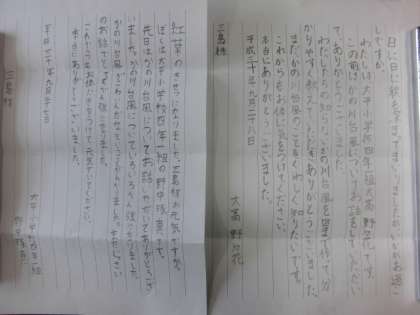 日に日に秋を感じてまいりましたがいかがお過ご
しですか。
わたしは大平小学校四年一組大高野々花です。
この前はかの川台風についてお話をしていただい
て、ありがとうございました。
わたしたちの知らないかの川台風を図まで作って分
かりやすく教えて ありがとうございます。
まだかの川台風のことをくわしく知りたいです。
これからもお体に気をつけてください。
本当にありがとうございました。
平成二十年九月二十八日
大高 野々花
三島様
紅葉のきせつになりました。三島様お元気ですか。
ぼくは大平小学校四年一組の野中 です。
先日はかの川台風についてお話 ありがとうござ
いました。かの川台風についていろいろ勉強になりました。
かの川台風がこわいんだなということがわかりました。
のお話でとても 強になりました。
これからもお体に気をつけて元気でいてください。
本当にありがとうございました。
平成二十年九月二十七日
大平小学校四年一組
野中
三島様